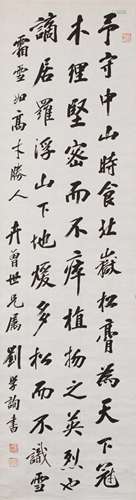 予守中山時食北嶽松膏為天下冠
木理堅密而不瘁植物之英烈也
謫居羅浮山下地煖多松而不識雪
霜雪如高才勝人 卉曾世兄属 劉學詢書